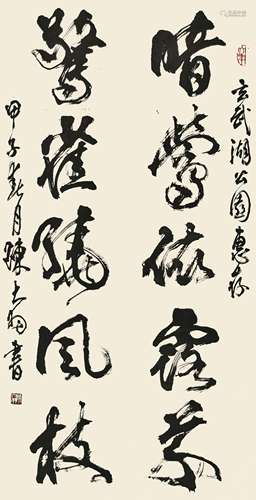 玄武湖公園惠存
暗螢依露草
驚雀繞風枝
甲子春月陳大羽書